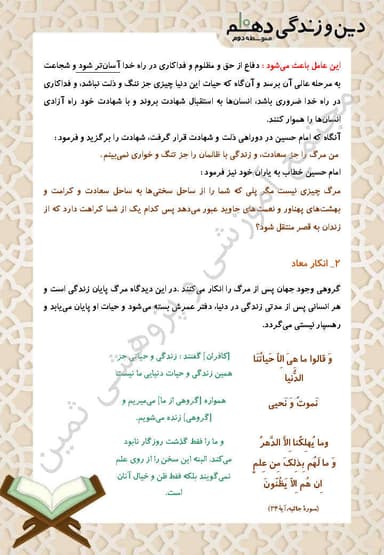 دین و زندگی دهم
متوسطه دوم
این عامل باعث می‌شود : دفاع از حق و مظلوم و فداکاری در راه خدا آسان‌تر شود و شجاعت
به مرحله عالی آن برسد و آن‌گاه که حیات این دنیا چیزی جز ننگ و ذلت نباشد، و فداکاری
در راه خدا ضروری باشد، انسان‌ها به استقبال شهادت بروند و با شهادت خود راه آزادی
انسان‌ها را هموار کنند.
آنگاه که امام حسین در دوراهی ذلت و شهادت قرار گرفت، شهادت را برگزید و فرمود :
من مرگ را جز سعادت، و زندگی با ظالمان را جز ننگ و خواری نمی‌بینم.
امام حسین خطاب به یاران خود نیز فرمود :
مرگ چیزی نیست مگر پلی که شما را از ساحل سختی‌ها به ساحل سعادت و کرامت و
بهشت‌های پهناور و نعمت های جاوید عبور می‌دهد پس کدام یک از شما کراهت دارد که از
زندان به قصر منتقل شود؟
۲_ انکار معاد
گروهی وجود جهان پس از مرگ را انکار می‌کنند .در این دیدگاه مرگ پایان زندگی است و
هر انسانی پس از مدتی زندگی در دنیا، دفتر عمرش بسته می‌شود و حیات او پایان می‌یابد و
رهسپار نیستی می‌گردد.
وَ قالوا ما هِیَ اِلاّ حَیاتُنَا
الدُّنیا
[کافران] گفتند : زندگی و حیاتی جز
همین زندگی و حیات دنیایی ما نیست
نَموتُ وَ نَحیی
همواره [گروهی از ما] می‌میریم و
[گروهی] زنده می‌شویم.
وما یُهلِکُنا اِلاَّ الدَّهرُ
وَ ما لَهُم بِذلِکَ مِن عِلمٍ
اِن هُم اِلاّ یَظُنّونَ
و ما را فقط گذشت روزگار نابود
می‌کند. البته این سخن را از روی علم
نمی‌گویند بلکه فقط ظن و خیال آنان
است.
(سورهٔ جاثیه، آیهٔ ۲۴)
مجتمع آموزشی و پژوهشی ثمین